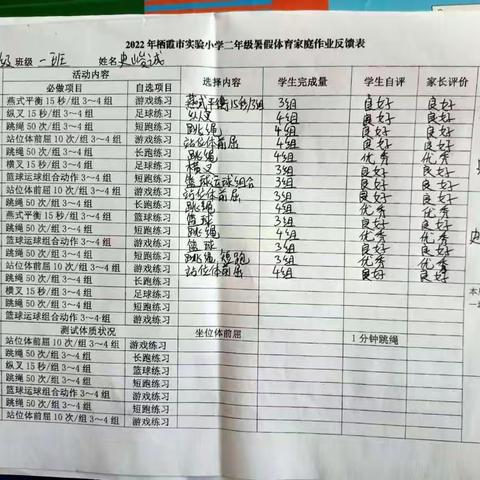 2022 年栖霞市实验小学二年级暑假体育家庭作业反馈表
级 班级 一班 姓名 史峻诚
活动内容 选择内容 学生完成量 学生自评 家长评价
必做项目 自选项目
燕式平衡 15 秒/组 3~4 组 游戏练习 燕式平衡15秒/3组 3组 良好 良好
纵叉 15 秒/组 3~4 组 足球练习 纵叉 4组 良好 良好
跳绳 50 次/组 3~4 组 短跑练习 跳绳 4组 良好 良好
站位体前屈 10 次/组 3~4 组 游戏练习 站位体前屈 4组 良好 良好
跳绳 50 次/组 3~4 组 长跑练习 跳绳 4组 优秀 优秀
横叉 15 秒/组 3~4 组 足球练习 横叉 3组 良好 良好
篮球运球组合动作 3~4 组 短跑练习 篮球运球组合 3组 良好 良好
站位体前屈 10 次/组 3~4 组 游戏练习 站位体前屈 3组 良好 良好
跳绳 50 次/组 3~4 组 长跑练习 跳绳 4组 优秀 优秀
燕式平衡 15 秒/组 3~4 组 足球练习 篮球 3组 优秀 优秀
篮球运球组合动作 3~4 组 短跑练习 跳绳 4组 优秀 优秀
跳绳 50 次/组 3~4 组 游戏练习 篮球 3组 良好 良好
篮球运球组合动作 3~4 组 短跑练习 跳绳 短跑 3组 优秀 优秀
站位体前屈 10 次/组 3~4 组 游戏练习 站位体前屈 4组 良好 良好
跳绳 50 次/组 3~4 组 长跑练习
横叉 15 秒/组 3~4 组 足球练习
跳绳 50 次/组 3~4 组 短跑练习
篮球运球组合动作 3~4 组 游戏练习
测试体质状况 坐位体前屈 1 分钟跳绳
站位体前屈 10 次/组 3~4 组 游戏练习
跳绳 50 次/组 3~4 组 长跑练习
纵叉 15 秒/组 3~4 组 篮球练习
跳绳 50 次/组 3~4 组 短跑练习
篮球运球组合动作 3~4 组 游戏练习
跳绳 50 次/组 3~4 组 短跑练习
站位体前屈 10 次/组 3~4 组 游戏练习